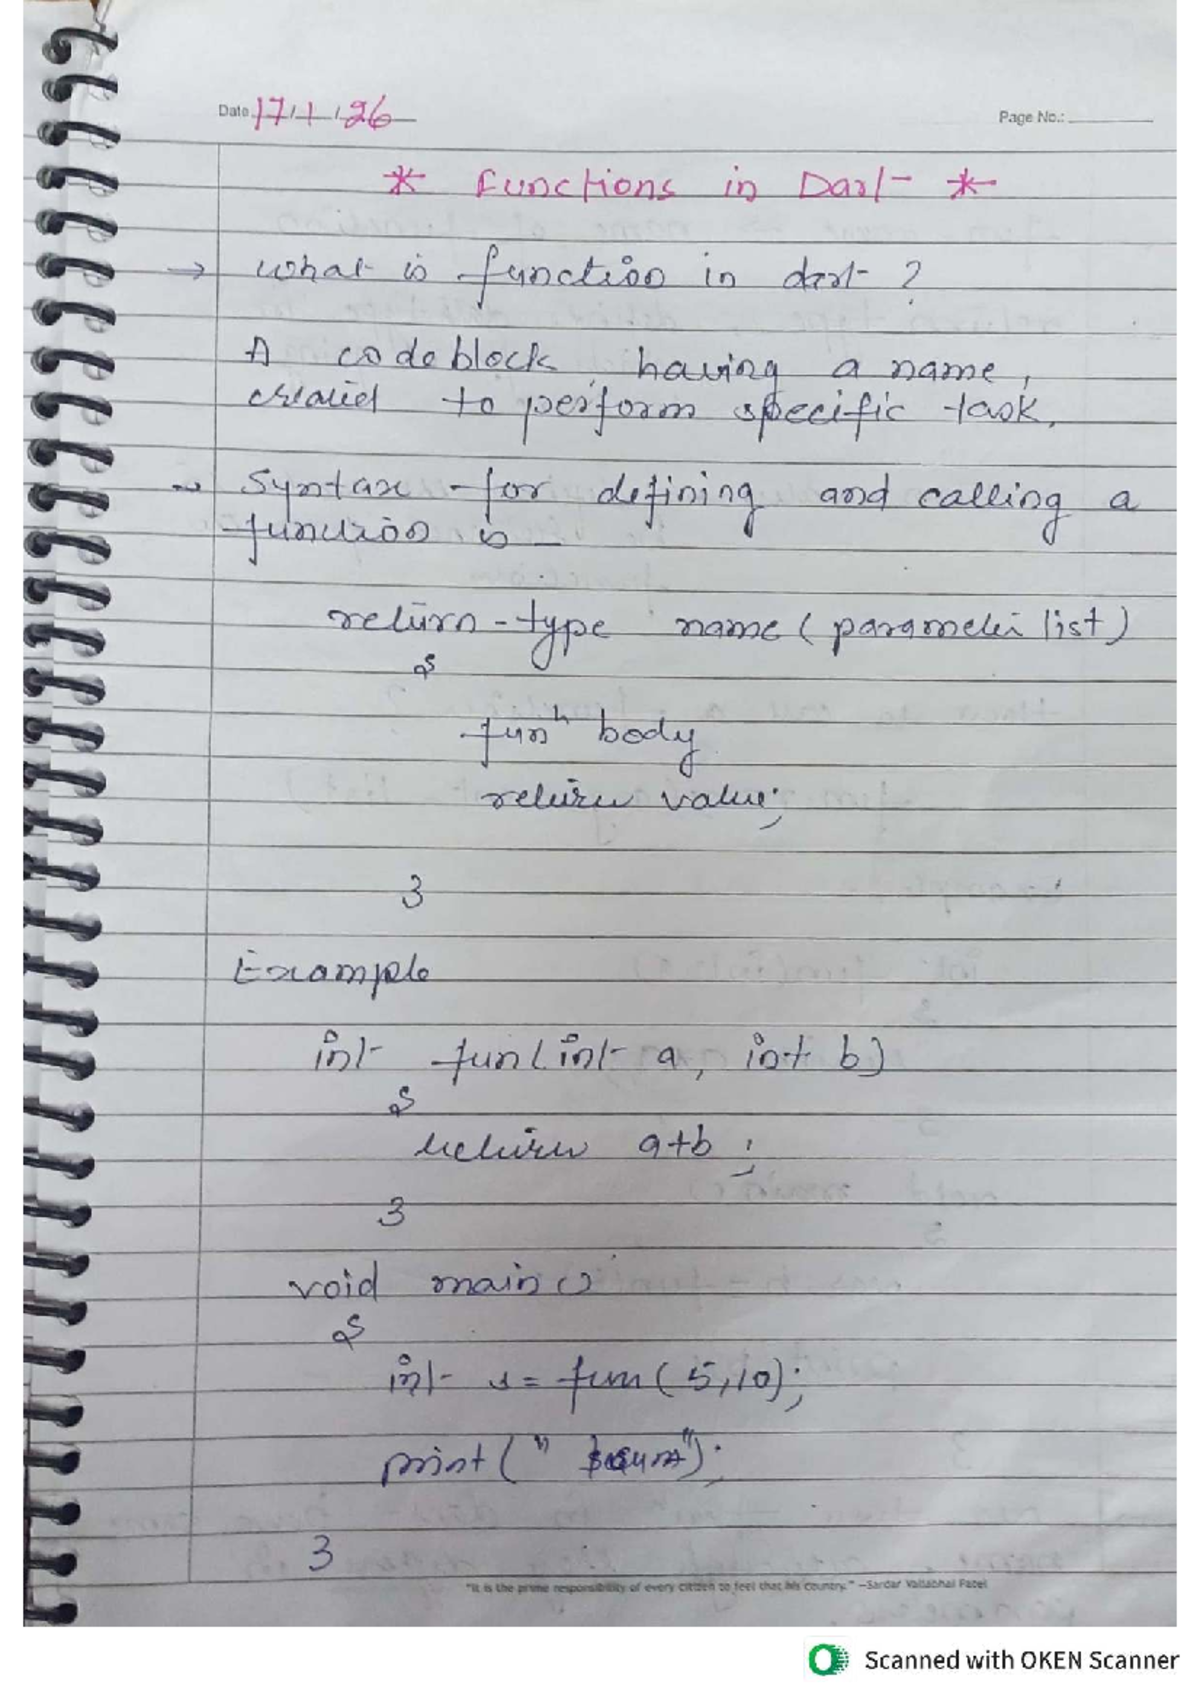 Date 17/1/26
Page No.:
* Functions in Dart *
→ What is function in dart ?
A codeblock, having a name,
created to perform specific task.
→ Syntax for defining and calling a
function is
return-type name (parameter list)
{
funⁿ body
return value;
}
Example
int fun(int a, int b)
{
return a+b ;
}
void main()
{
int s = fun(5,10);
print("
");
}
"It is the prime responsibility of every citizen to feel that his country." –Sardar Vallabhai Patel
Scanned with OKEN Scanner